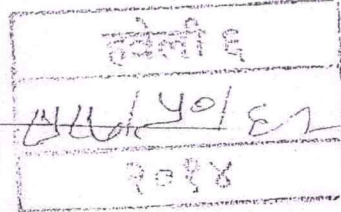 हवेली ६
५०/६२
२०१४